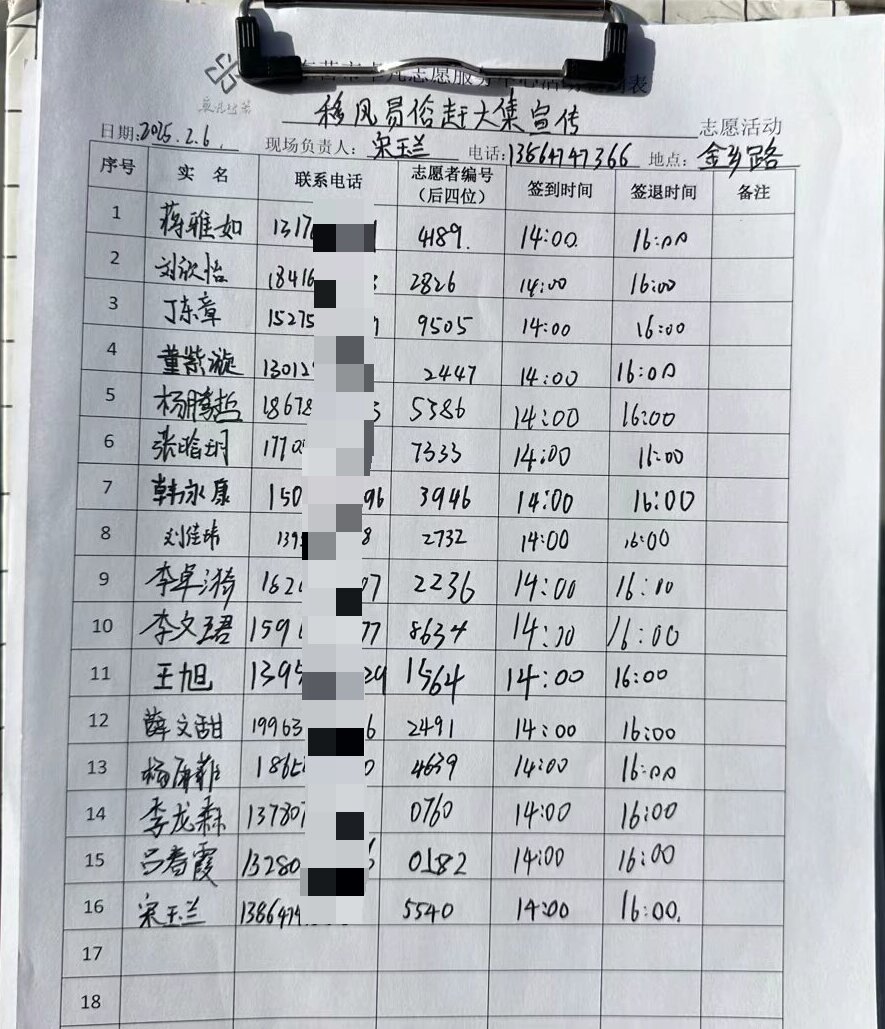 志愿服务
移风易俗赶大集宣传 志愿活动
日期:2025.2.6. 现场负责人: 宋玉兰 电话:13864747366 地点: 金乡路
序号 实 名 联系电话 志愿者编号（后四位） 签到时间 签退时间 备注
1 蒋雅如 1317 4189. 14:00 16:00
2 刘欣怡 18416 2826 14:00 16:00
3 丁东章 15275 9505 14:00 16:00
4 董紫漩 13012 2447 14:00 16:00
5 杨腾哲 18678 3 5386 14:00 16:00
6 张晗玥 1770 7333 14:00 16:00
7 韩永康 150 96 3946 14:00 16:00
8 刘佳玮 139 8 2732 14:00 16:00
9 李卓漪 1626 07 2236 14:00 16:00
10 李文珺 1591 77 8634 14:00 16:00
11 王旭 1395 29 1564 14:00 16:00
12 薛文甜 19963 6 2491 14:00 16:00
13 杨 1865 0 4639 14:00 16:00
14 李龙森 13780 0760 14:00 16:00
15 吕春霞 13280 0182 14:00 16:00
16 宋玉兰 1386474 5540 14:00 16:00.
17
18